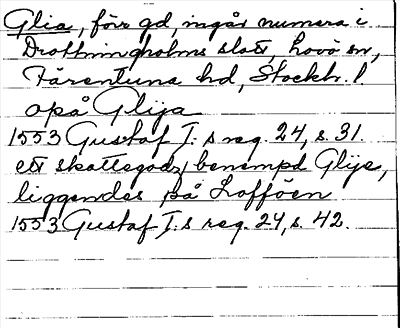 Glia, förr gd, ingår numera i
Drottningholms slott, Lovö sn,
Färentuna hd, Stockh. l
opå Glija
1553 Gustaf I:s reg. 24, s. 31.
ett skattegodz benempd Glije,
liggendes på Lofföen
1553 Gustaf I:s reg. 24, s. 42.